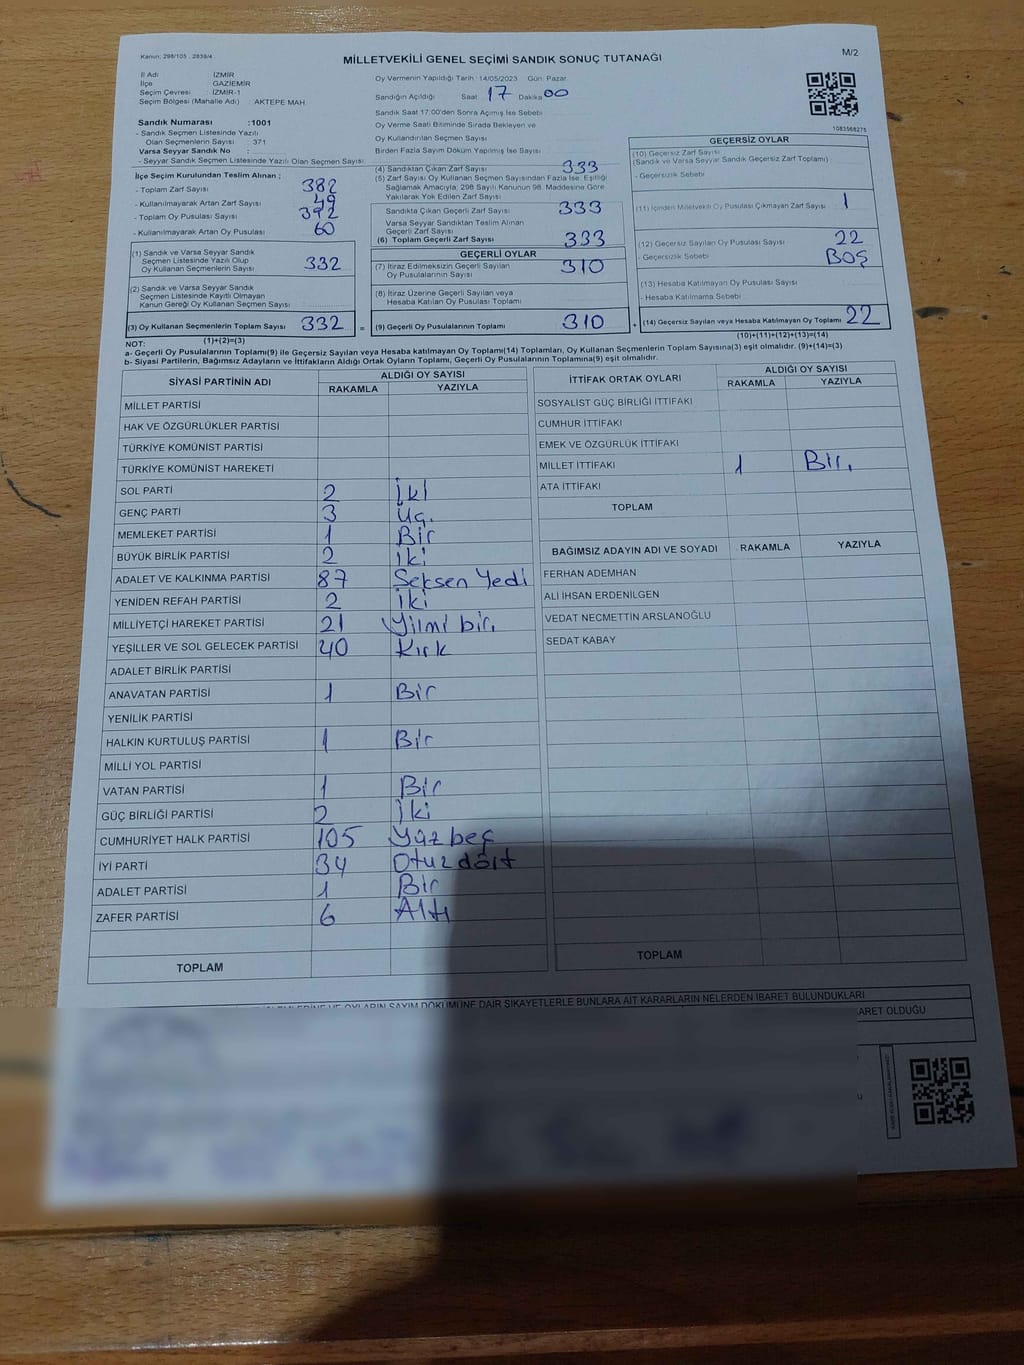 Kanun: 298/105 , 2839/4
MİLLETVEKİLİ GENEL SEÇİMİ SANDIK SONUÇ TUTANAĞI
M/2
İl Adı : İZMİR
İlçe : GAZİEMİR
Seçim Çevresi : İZMİR-1
Seçim Bölgesi (Mahalle Adı) AKTEPE MAH.
Sandık Numarası :1001
- Sandık Seçmen Listesinde Yazılı
Olan Seçmenlerin Sayısı 371
Varsa Seyyar Sandık No :
- Seyyar Sandık Seçmen Listesinde Yazılı Olan Seçmen Sayısı :
Oy Vermenin Yapıldığı Tarih :14/05/2023 Gün: Pazar
Sandığın Açıldığı Saat 17 Dakika 00
Sandık Saat 17:00'den Sonra Açılmış İse Sebebi
Oy Verme Saati Bitiminde Sırada Bekleyen ve
Oy Kullandırılan Seçmen Sayısı
Birden Fazla Sayım Döküm Yapılmış İse Sayısı
1083568275
İlçe Seçim Kurulundan Teslim Alınan ;
- Toplam Zarf Sayısı 382
- Kullanılmayarak Artan Zarf Sayısı 49
- Toplam Oy Pusulası Sayısı 392
- Kullanılmayarak Artan Oy Pusulası 60
(1) Sandık ve Varsa Seyyar Sandık
Seçmen Listesinde Yazılı Olup
Oy Kullanan Seçmenlerin Sayısı 332
(2) Sandık ve Varsa Seyyar Sandık
Seçmen Listesinde Kayıtlı Olmayan
Kanun Gereği Oy Kullanan Seçmen Sayısı
(3) Oy Kullanan Seçmenlerin Toplam Sayısı 332 =
(1)+(2)=(3)
(4) Sandıktan Çıkan Zarf Sayısı 333
(5) Zarf Sayısı Oy Kullanan Seçmen Sayısından Fazla İse, Eşitliği
Sağlamak Amacıyla; 298 Sayılı Kanunun 98. Maddesine Göre
Yakılarak Yok Edilen Zarf Sayısı
Sandıkta Çıkan Geçerli Zarf Sayısı 333
Varsa Seyyar Sandıktan Teslim Alınan
Geçerli Zarf Sayısı
(6) Toplam Geçerli Zarf Sayısı 333
GEÇERLİ OYLAR
(7) İtiraz Edilmeksizin Geçerli Sayılan
Oy Pusulalarının Sayısı 310
(8) İtiraz Üzerine Geçerli Sayılan veya
Hesaba Katılan Oy Pusulası Toplamı
(9) Geçerli Oy Pusulalarının Toplamı 310 +
GEÇERSİZ OYLAR
(10) Geçersiz Zarf Sayısı
(Sandık ve Varsa Seyyar Sandık Geçersiz Zarf Toplamı)
- Geçersizlik Sebebi
(11) İçinden Milletvekili Oy Pusulası Çıkmayan Zarf Sayısı 1
(12) Geçersiz Sayılan Oy Pusulası Sayısı 22
- Geçersizlik Sebebi BOŞ
(13) Hesaba Katılmayan Oy Pusulası Sayısı
- Hesaba Katılmama Sebebi
(14) Geçersiz Sayılan veya Hesaba Katılmayan Oy Toplamı 22
(10)+(11)+(12)+(13)=(14)
NOT:
a- Geçerli Oy Pusulalarının Toplamı(9) ile Geçersiz Sayılan veya Hesaba katılmayan Oy Toplamı(14) Toplamları, Oy Kullanan Seçmenlerin Toplam Sayısına(3) eşit olmalıdır. (9)+(14)=(3)
b- Siyasi Partilerin, Bağımsız Adayların ve İttifakların Aldığı Ortak Oyların Toplamı, Geçerli Oy Pusulalarının Toplamına(9) eşit olmalıdır.
SİYASİ PARTİNİN ADI ALDIĞI OY SAYISI
RAKAMLA YAZIYLA
MİLLET PARTİSİ
HAK VE ÖZGÜRLÜKLER PARTİSİ
TÜRKİYE KOMÜNİST PARTİSİ
TÜRKİYE KOMÜNİST HAREKETİ
SOL PARTİ 2 İki
GENÇ PARTİ 3 Üç.
MEMLEKET PARTİSİ 1 Bir
BÜYÜK BİRLİK PARTİSİ 2 iki
ADALET VE KALKINMA PARTİSİ 87 Seksen Yedi
YENİDEN REFAH PARTİSİ 2 iki
MİLLİYETÇİ HAREKET PARTİSİ 21 Yilmi bir.
YEŞİLLER VE SOL GELECEK PARTİSİ 40 Kırk
ADALET BİRLİK PARTİSİ
ANAVATAN PARTİSİ 1 Bir
YENİLİK PARTİSİ
HALKIN KURTULUŞ PARTİSİ 1 Bir
MİLLİ YOL PARTİSİ
VATAN PARTİSİ 1 Bir
GÜÇ BİRLİĞİ PARTİSİ 2 İki
CUMHURİYET HALK PARTİSİ 105 Yüz beş
İYİ PARTİ 34 Otuz dört
ADALET PARTİSİ 1 Bir
ZAFER PARTİSİ 6 Altı
TOPLAM
İTTİFAK ORTAK OYLARI ALDIĞI OY SAYISI
RAKAMLA YAZIYLA
SOSYALİST GÜÇ BİRLİĞİ İTTİFAKI
CUMHUR İTTİFAKI
EMEK VE ÖZGÜRLÜK İTTİFAKI
MİLLET İTTİFAKI 1 Bir.
ATA İTTİFAKI
TOPLAM
BAĞIMSIZ ADAYIN ADI VE SOYADI RAKAMLA YAZIYLA
FERHAN ADEMHAN
ALİ İHSAN ERDENİLGEN
VEDAT NECMETTİN ARSLANOĞLU
SEDAT KABAY
TOPLAM
VE OYLARIN SAYIM DÖKÜMÜNE DAİR ŞİKAYETLERLE BUNLARA AİT KARARLARIN NELERDEN İBARET BULUNDUKLARI
OLDUĞU